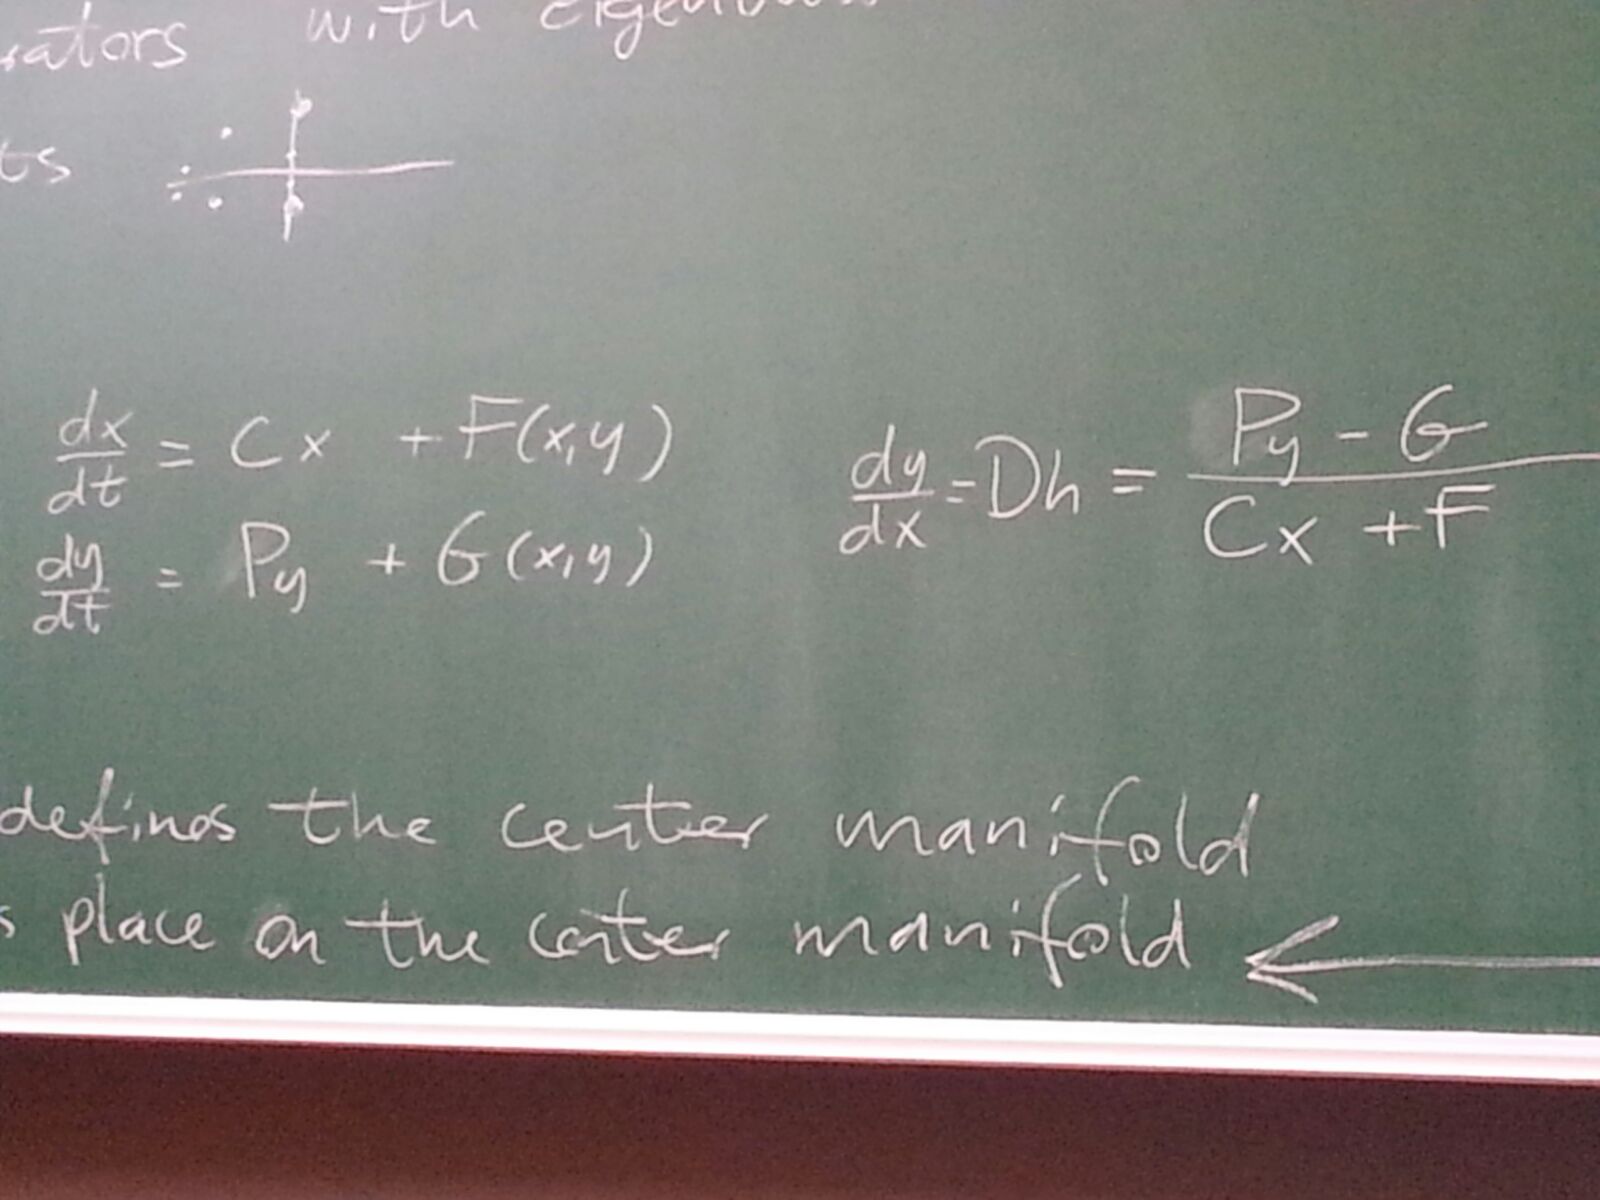 with
ts
dx/dt = Cx + F(x,y)
dy/dt = Py + G(x,y)
dy/dx = Dh = (Py - G)/(Cx + F)
defines the center manifold
s place on the center manifold ←